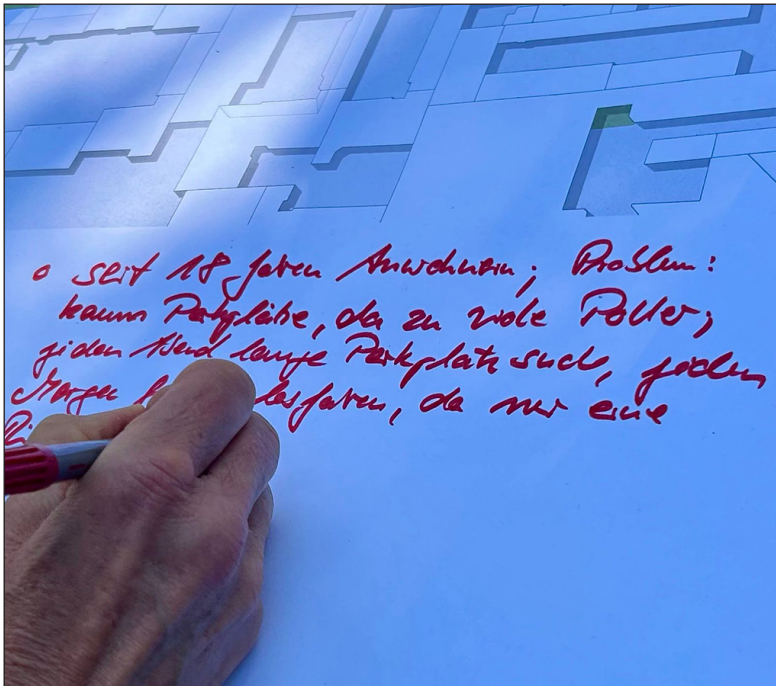 o seit 18 Jahren Anwohnerin; Problem:
kaum Parkplätze, da zu viele Poller;
jeden Abend lange Parkplatzsuche, jeden
Morgen losfahren, da nur eine